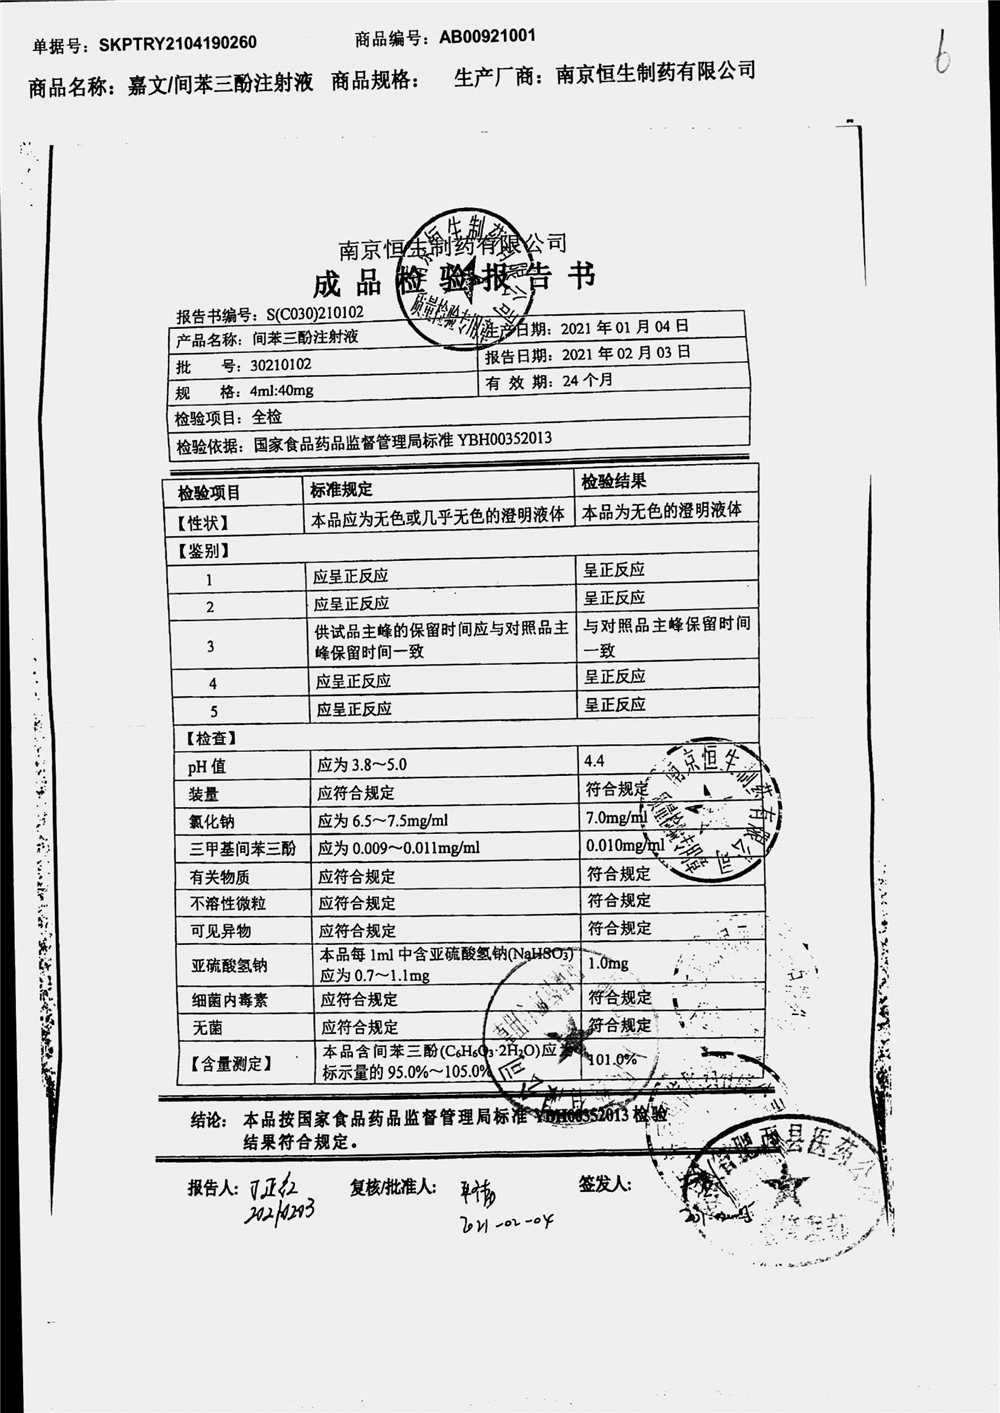 单据号：SKPTRY2104190260 商品编号：AB00921001
6
商品名称：嘉文/间苯三酚注射液 商品规格： 生产厂商：南京恒生制药有限公司
南京恒生制药有限公司
成品检验报告书
报告书编号：S(C030)210102
产品名称：间苯三酚注射液 生产日期：2021年01月04日
批 号：30210102 报告日期：2021年02月03日
规 格：4ml:40mg 有 效 期：24个月
检验项目：全检
检验依据：国家食品药品监督管理局标准 YBH00352013
检验项目 标准规定 检验结果
【性状】 本品应为无色或几乎无色的澄明液体 本品为无色的澄明液体
【鉴别】
1 应呈正反应 呈正反应
2 应呈正反应 呈正反应
3 供试品主峰的保留时间应与对照品主 与对照品主峰保留时间
峰保留时间一致 一致
4 应呈正反应 呈正反应
5 应呈正反应 呈正反应
【检查】
pH值 应为3.8～5.0 4.4
装量 应符合规定 符合规定
氯化钠 应为6.5～7.5mg/ml 7.0mg/ml
三甲基间苯三酚 应为0.009～0.011mg/ml 0.010mg/ml
有关物质 应符合规定 符合规定
不溶性微粒 应符合规定 符合规定
可见异物 应符合规定 符合规定
亚硫酸氢钠 本品每1ml中含亚硫酸氢钠(NaHSO₃) 1.0mg
应为0.7～1.1mg
细菌内毒素 应符合规定 符合规定
无菌 应符合规定 符合规定
【含量测定】 本品含间苯三酚(C₆H₆O₃·2H₂O)应为 101.0%
标示量的95.0%～105.0%
结论： 本品按国家食品药品监督管理局标准 YBH00352013 检验
结果符合规定。
报告人： 复核/批准人： 签发人：
20210203 2021-02-04
南京恒生制药有限公司
质量检验专用章
南京恒生制药有限公司